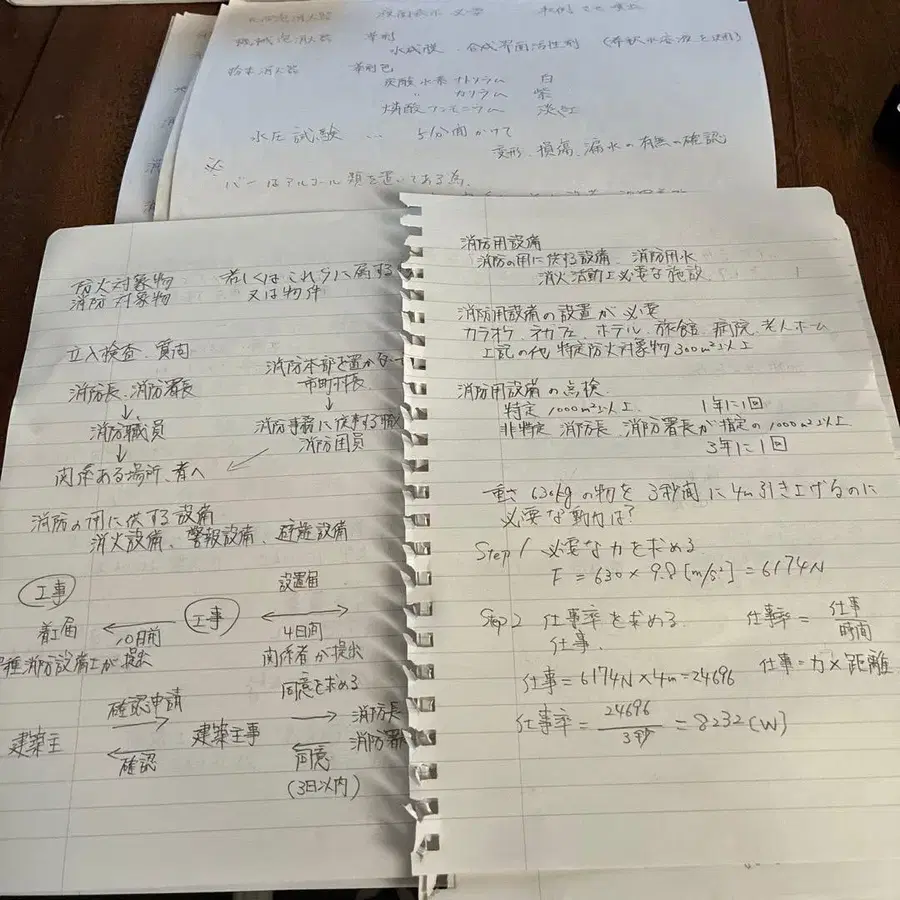 機械泡消火器 薬剤
水成膜、合成界面活性剤 (希釈水溶液を使用)
粉末消火器 薬剤色
炭酸水素ナトリウム 白
〃 カリウム 紫
燐酸アンモニウム 淡紅
水圧試験 … 5分間かけて
変形、損傷、漏水の有無の確認
※
バーはアルコール類を置いてある為、
防火対象物
消防対象物
若しくはこれらに属する
又は物件
立入検査、質問
消防長、消防署長
↓
消防職員
↓
関係ある場所、者へ
消防本部を置かない
市町村長
↓
消防事務に従事する職
消防団員
消防の用に供する設備
消火設備、警報設備、避難設備
工事
着工届
10日前
工事
設置届
4日間
種消防設備士が提出
関係者が提出
確認申請
同意を求める
建築主
建築主事
消防長
消防署
確認
同意
(3日以内)
消防用設備
消防の用に供する設備、消防用水
消火活動上必要な施設
消防用設備の設置が必要
カラオケ、ネカフェ、ホテル、旅館、病院、老人ホーム
上記の他 特定防火対象物300m²以上
消防用設備の点検
特定 1000m²以上 1年に1回
非特定 消防長、消防署長が指定の1000m²以上
3年に1回
重さ 630kgの物を3秒間に4m引き上げるのに
必要な動力は?
Step 1 必要な力を求める
F = 630 × 9.8 [m/s²] = 6174N
Step 2 仕事率を求める
仕事率 = 仕事/時間
仕事.
仕事 = 力×距離
仕事 = 6174N × 4m = 24696
仕事率 = 24696/3秒 = 8232 (W)